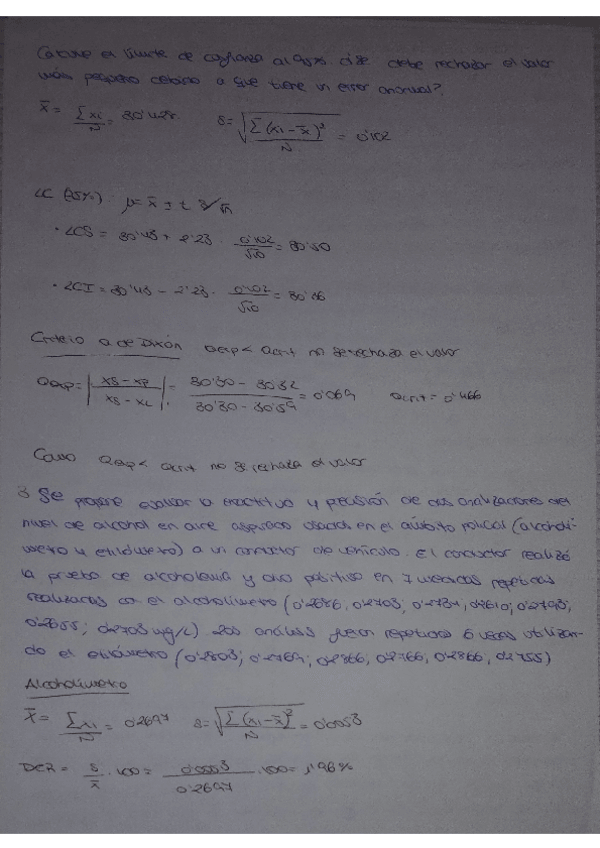 Calcule el límite de confianza al 95%. d) Se debe rechazar el valor
más pequeño debido a que tiene un error anormal?
x̄ = Σxi/N = 30'428 s = √(Σ(xi - x̄)²/N) = 0'102
LC (95%) μ = x̄ ± t s/√n
• LCS = 30'43 + 2'23 · 0'102/√10 = 30'50
• LCI = 30'43 - 2'23 · 0'102/√10 = 30'36
Criterio Q de Dixón Qexp < Qcrit no se rechaza el valor
Qexp = |xs - xp / xs - xL| = 30'30 - 30'32 / 30'30 - 30'59 = 0'069 Qcrit = 0'466
Como Qexp < Qcrit no se rechaza el valor
3 Se propone evaluar la exactitud y precisión de dos analizadores del
nivel de alcohol en aire aspirado usados en el ámbito policial (alcoholí-
metro y etilómetro) a un conductor de vehículo. El conductor realizó
la prueba de alcoholemia y dio positivo en 7 medidas repetidas
realizadas con el alcoholímetro (0'2686; 0'2703; 0'2731; 0'2610; 0'2793;
0'2655; 0'2703 mg/L) Los análisis fueron repetidos 6 veces utilizan-
do el etilómetro (0'2803; 0'2769; 0'2866; 0'2766; 0'2866; 0'2755)
Alcoholímetro
x̄ = Σxi/N = 0'2697 s = √(Σ(xi - x̄)²/N) = 0'0053
DER = s/x̄ · 100 = 0'0053/0'2697 · 100 = 1'96%